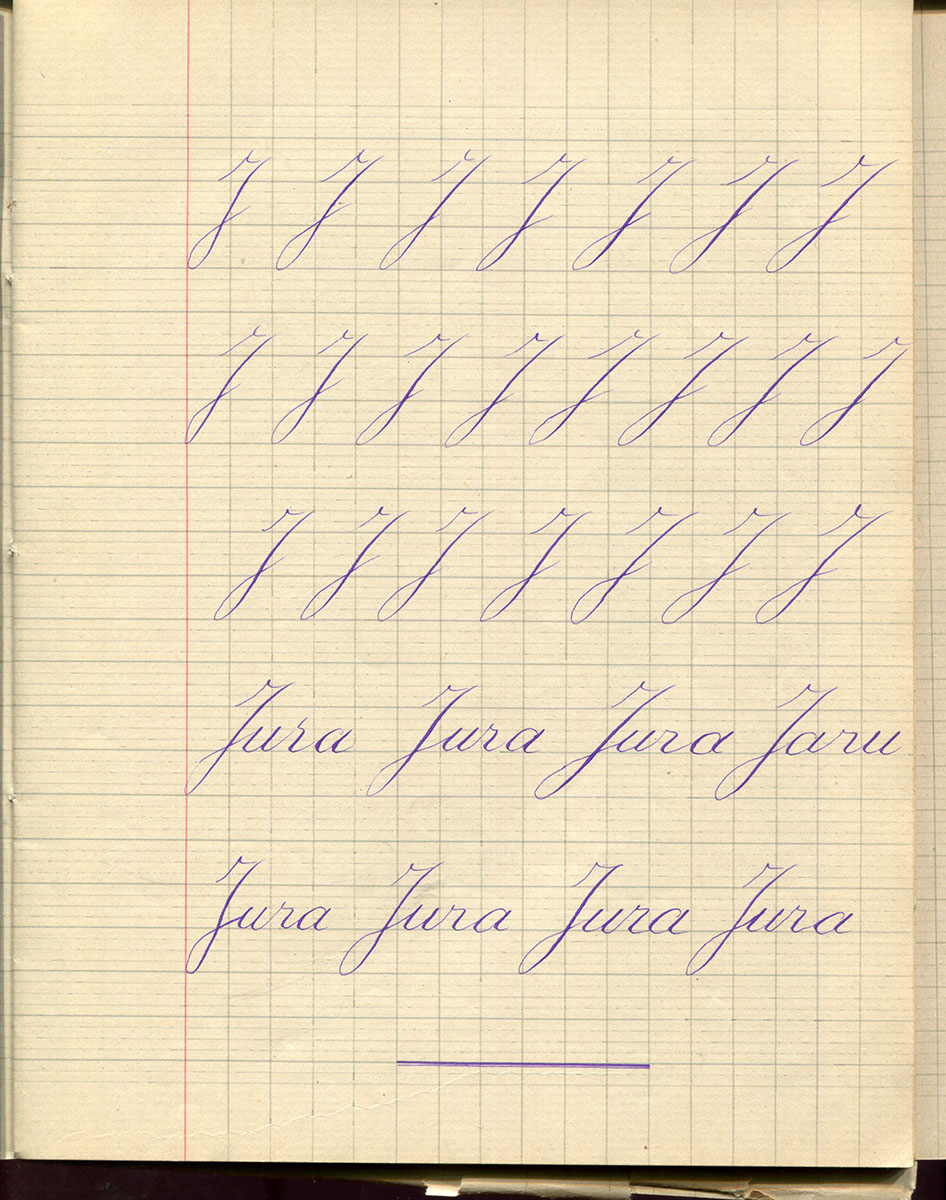 J J J J J J J
J J J J J J J J
J J J J J J J
Jura Jura Jura Jaru
Jura Jura Jura Jura